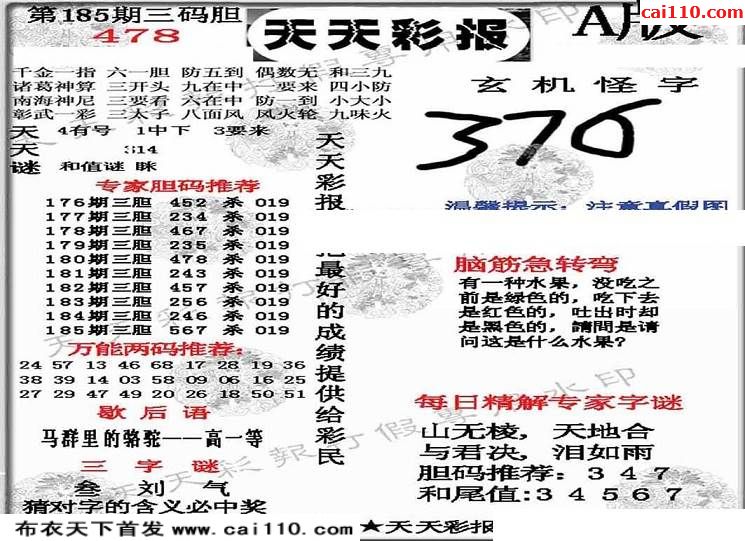 第185期三码胆
478
天天彩报
A版
cai110.com
千金一指 六一胆 防五到 偶数无 和三九
诸葛神算 三开头 九在中 一要来 四小防
南海神尼 三要看 六在中 防一到 小大小
彰武一彩 三太子 八面风 风火轮 九味火
天 4有号 1中下 3要来
天 314
谜 和值谜 眯
专家胆码推荐
176期三胆 452 杀 019
177期三胆 234 杀 019
178期三胆 467 杀 019
179期三胆 235 杀 019
180期三胆 478 杀 019
181期三胆 243 杀 019
182期三胆 457 杀 019
183期三胆 256 杀 019
184期三胆 246 杀 019
185期三胆 567 杀 019
万能两码推荐:
24 57 13 46 68 17 28 19 36
38 39 14 03 58 09 06 16 25
27 29 47 49 20 26 18 50 51
歇后语
马群里的骆驼——高一等
三字谜
叁 刘 气
猜对字的含义必中奖
天天彩报
把最好的成绩提供给彩民
玄机怪字
376
温馨提示:注意真假图
脑筋急转弯
有一种水果,没吃之
前是绿色的,吃下去
是红色的,吐出时却
是黑色的,請問是请
问这是什么水果?
每日精解专家字谜
山无棱,天地合
与君决,泪如雨
胆码推荐:347
和尾值:34567
布衣天下首发 www.cai110.com
★天天彩报